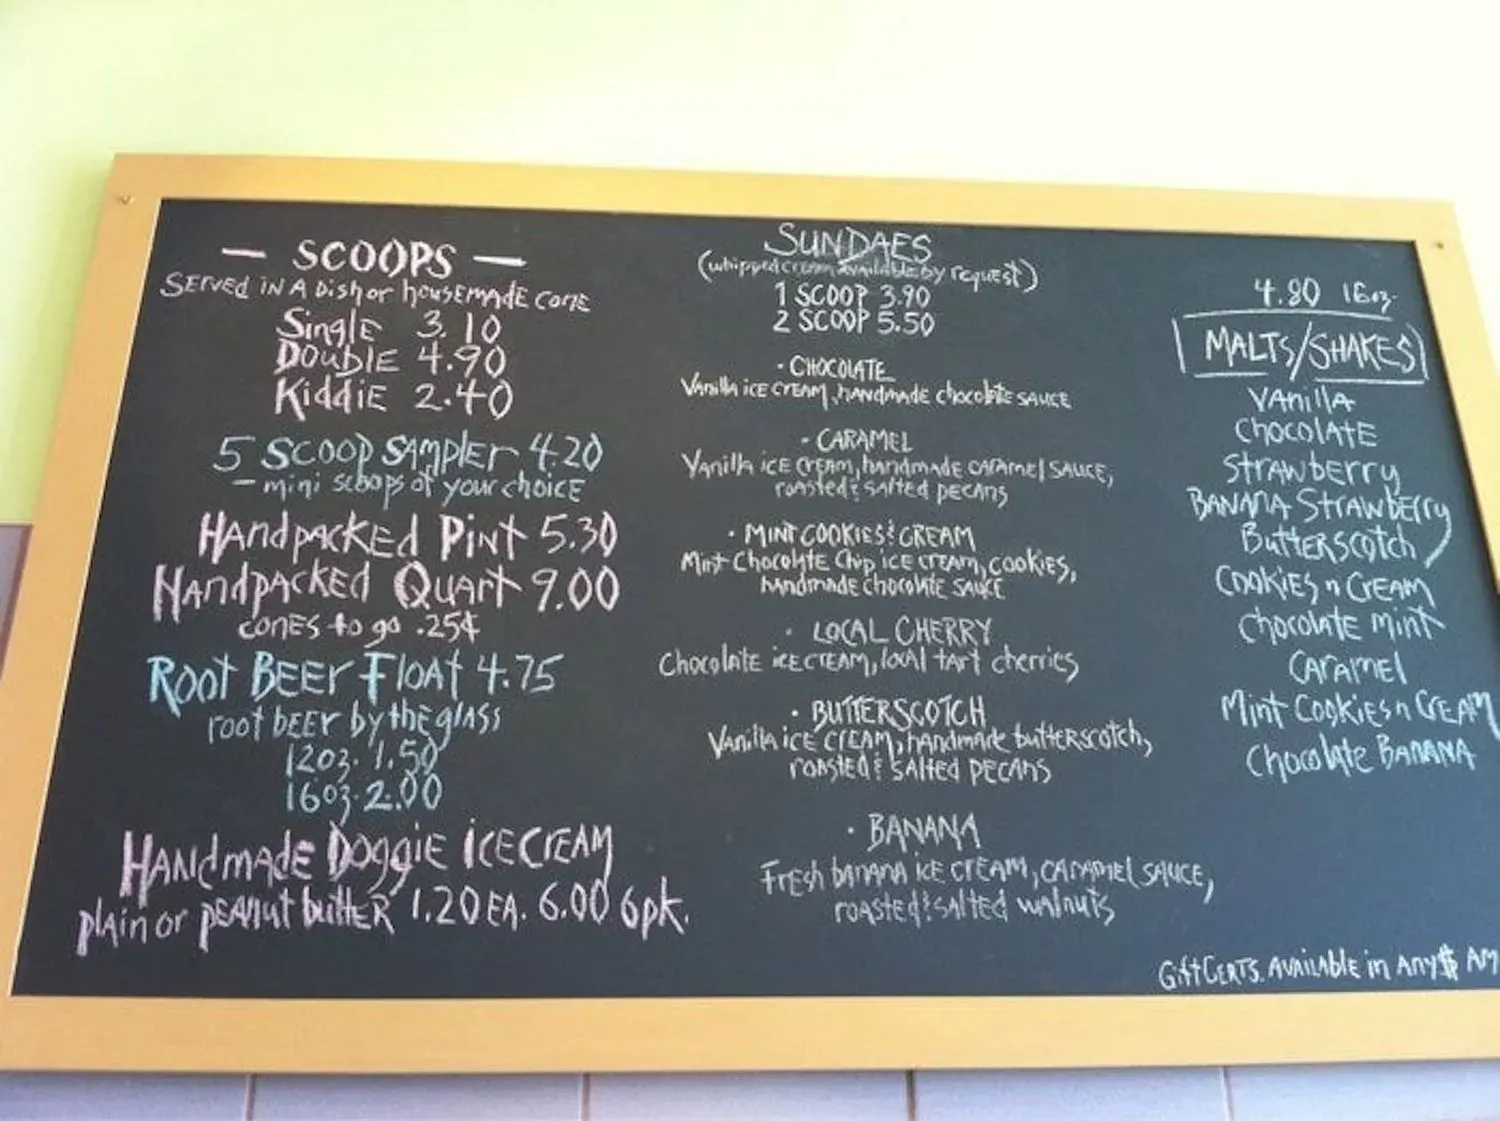 — SCOOPS —
SERVED IN A DISH or HOUSEMADE CONE
Single 3.10
Double 4.90
Kiddie 2.40
5 SCOOP SAMPLER 4.20
- mini scoops of your choice
Handpacked Pint 5.30
Handpacked Quart 9.00
cones to go .25¢
Root Beer Float 4.75
root beer by the glass
12oz. 1.50
16oz. 2.00
Handmade Doggie Ice Cream
plain or peanut butter 1.20 EA. 6.00 6pk.
SUNDAES
(whipped cream available by request)
1 SCOOP 3.90
2 SCOOP 5.50
• CHOCOLATE
Vanilla ice cream, handmade chocolate sauce
• CARAMEL
Vanilla ice cream, handmade caramel sauce,
roasted & salted pecans
• MINT COOKIES & CREAM
Mint Chocolate Chip ice cream, cookies,
handmade chocolate sauce
• LOCAL CHERRY
Chocolate ice cream, local tart cherries
• BUTTERSCOTCH
Vanilla ice cream, handmade butterscotch,
roasted & salted pecans
• BANANA
Fresh banana ice cream, caramel sauce,
roasted & salted walnuts
4.80 16oz.
MALTS/SHAKES
Vanilla
Chocolate
Strawberry
Banana Strawberry
Butterscotch
Cookies n Cream
Chocolate Mint
Caramel
Mint Cookies n Cream
Chocolate Banana
Gift Certs. Available in Any $ AM